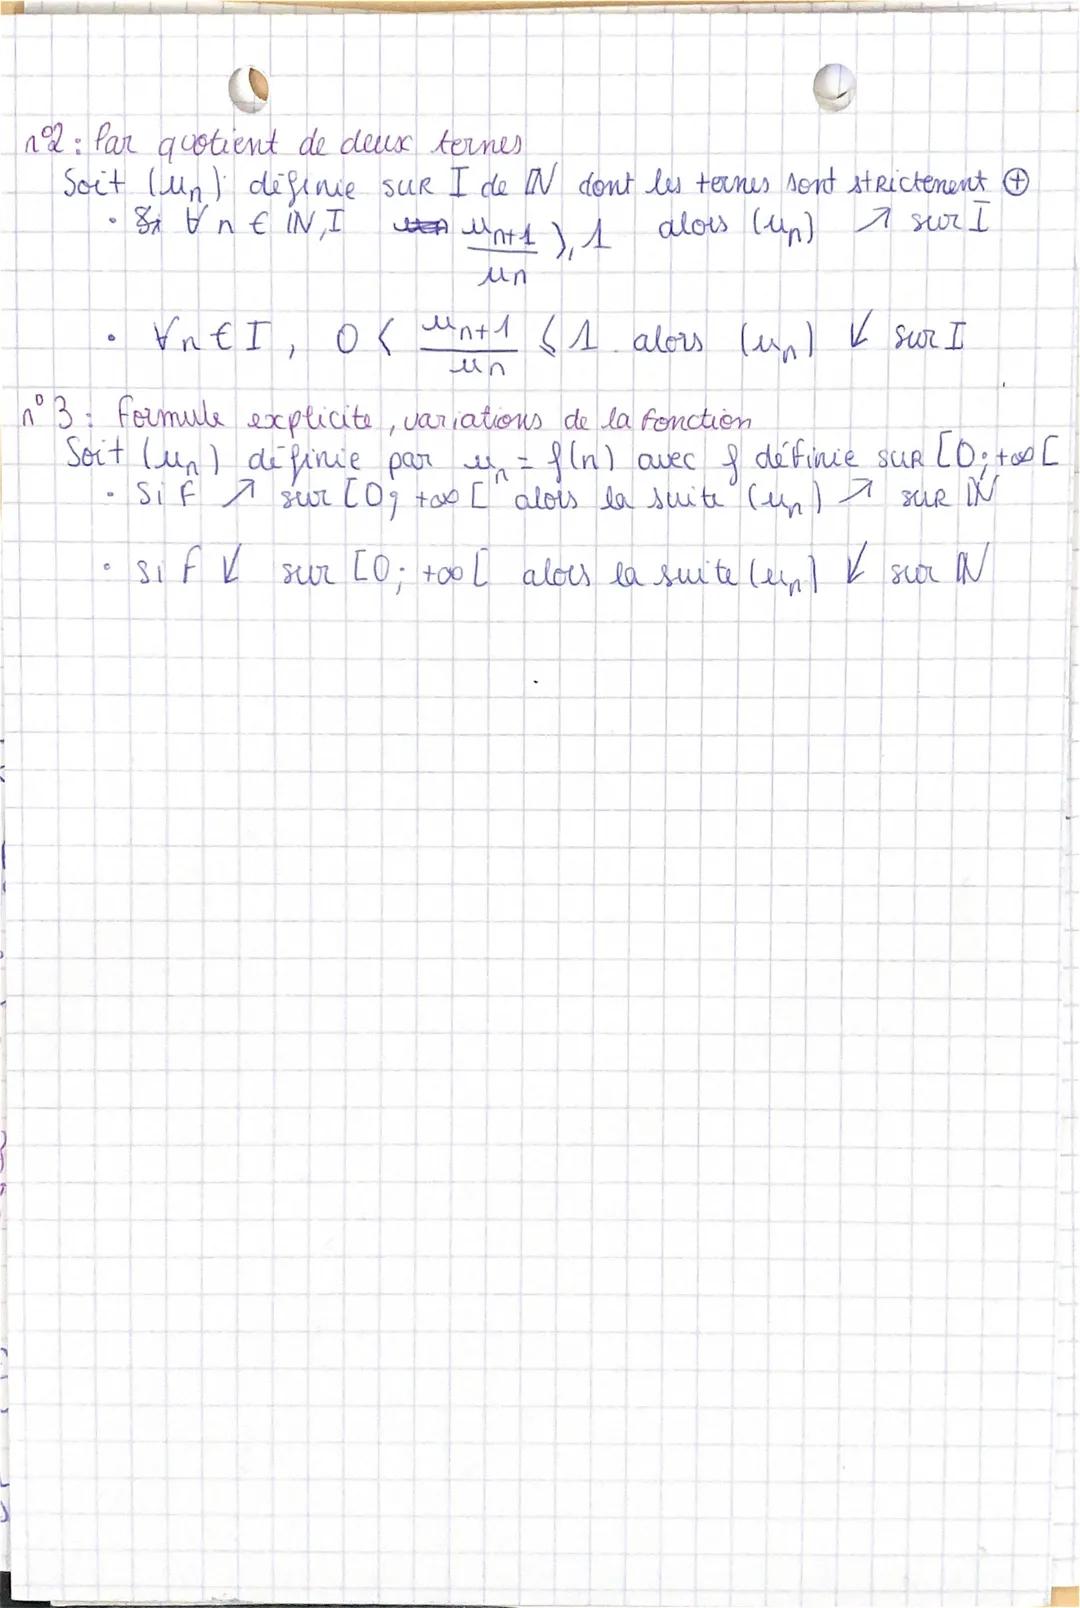 n°2 : Par quotient de deux termes
Soit (un) définie sur I de ℕ dont les termes sont strictement ⊕
• Si ∀ n ∈ ℕ, I un+1/un ⩾ 1 alors (un) ↗ sur I
• ∀n ∈ I, 0 < un+1/un ⩽ 1 alors (un) ↙ sur I
n°3 : Formule explicite, variations de la fonction
Soit (un) définie par un = f(n) avec f définie sur [0; +∞[
• Si f ↗ sur [0; +∞[ alors la suite (un) ↗ sur ℕ
• si f ↙ sur [0; +∞[ alors la suite (un) ↙ sur ℕ